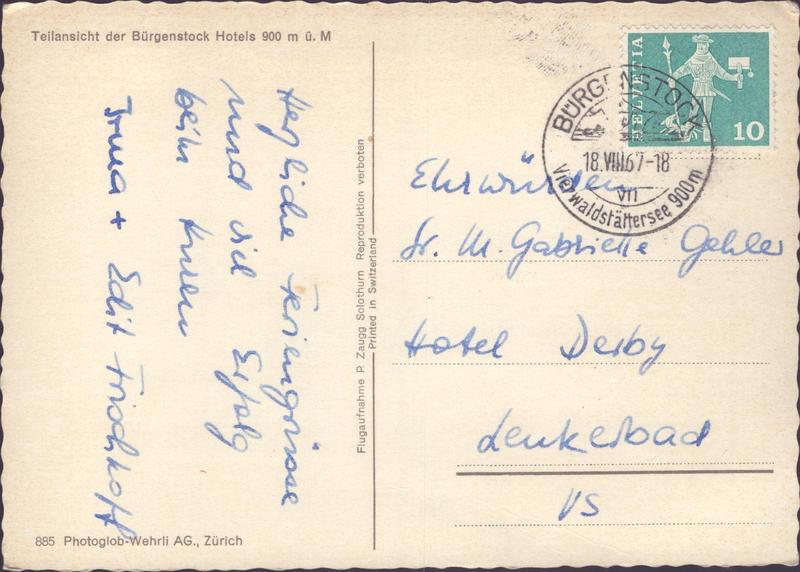 Teilansicht der Bürgenstock Hotels 900 m ü. M
Herzliche Feriengrüsse
und viel Erfolg
beim Kuren
Irma + Edit Frischkopf
885 Photoglob-Wehrli AG., Zürich
Flugaufnahme P. Zaugg Solothurn Reproduktion verboten
Printed in Switzerland
HELVETIA
10
BÜRGENSTOCK
18.VIII.67-18
VII
Vierwaldstättersee 900m
Ehrwürden
Sr. M. Gabrielle Gehler
Hotel Derby
Leukerbad
VS